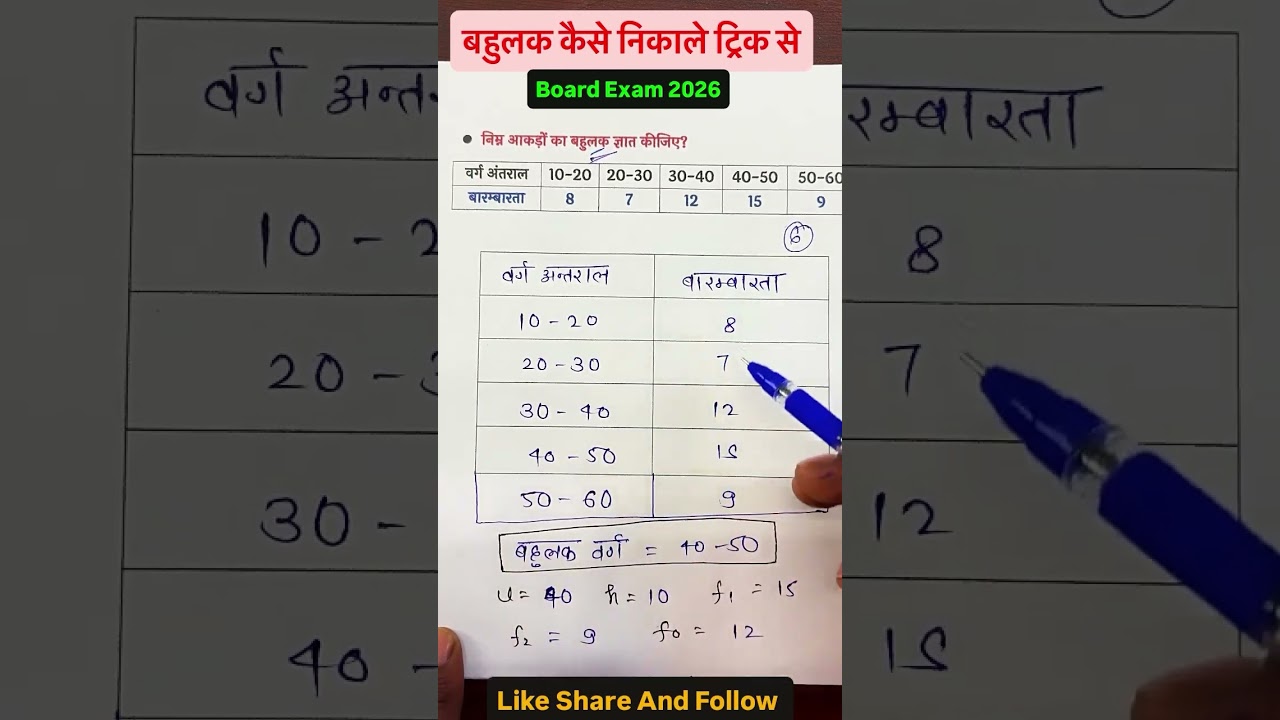 बहुलक कैसे निकाले ट्रिक से
Board Exam 2026
• निम्न आकड़ों का बहुलक ज्ञात कीजिए?
वर्ग अंतराल 10-20 20-30 30-40 40-50 50-60
बारम्बारता 8 7 12 15 9
6
वर्ग अन्तराल बारम्बारता
10 - 20 8
20 - 30 7
30 - 40 12
40 - 50 15
50 - 60 9
बहुलक वर्ग = 40 - 50
l = 40 h = 10 f₁ = 15
f₂ = 9 f₀ = 12
Like Share And Follow